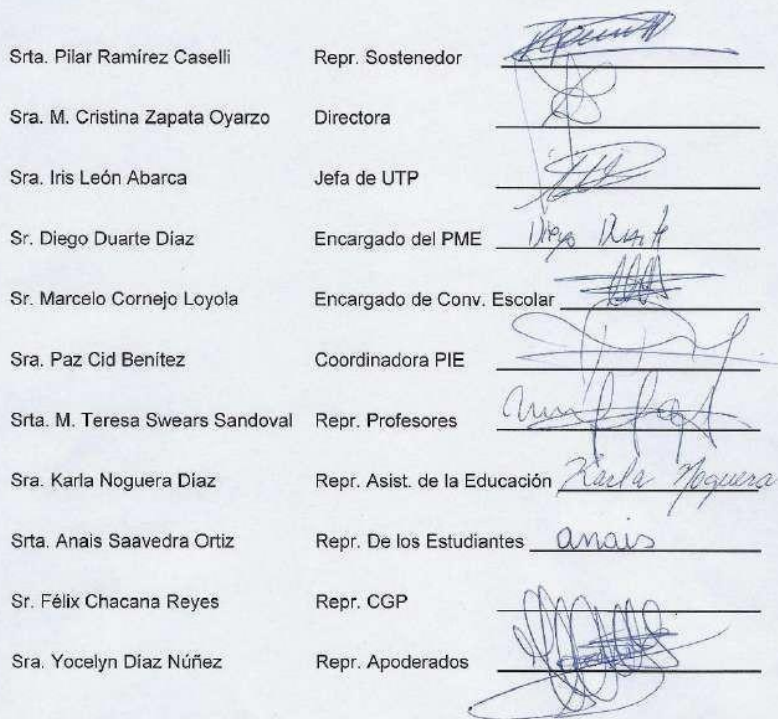 Srta. Pilar Ramírez Caselli Repr. Sostenedor
Sra. M. Cristina Zapata Oyarzo Directora
Sra. Iris León Abarca Jefa de UTP
Sr. Diego Duarte Díaz Encargado del PME Diego Duarte
Sr. Marcelo Cornejo Loyola Encargado de Conv. Escolar
Sra. Paz Cid Benítez Coordinadora PIE
Srta. M. Teresa Swears Sandoval Repr. Profesores
Sra. Karla Noguera Díaz Repr. Asist. de la Educación Karla Noguera
Srta. Anais Saavedra Ortiz Repr. De los Estudiantes anais
Sr. Félix Chacana Reyes Repr. CGP
Sra. Yocelyn Díaz Núñez Repr. Apoderados